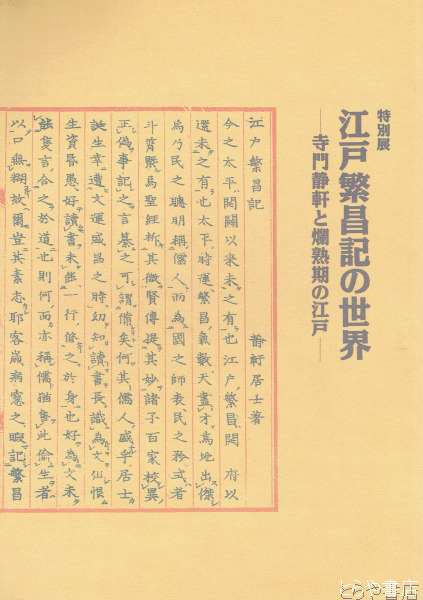 特別展
江戸繁昌記の世界
―寺門静軒と爛熟期の江戸―
江戸繁昌記
静軒居士著
今之太平開闢以来未之有也江戸繁昌開府以
還未之有也太平時運繁昌氣數天盡才焉地出傑
焉乃民之聰明稱儒人而為國之師表民之矜式者
斗筲槩焉聖經折其微賢傳提其妙諸子百家校異
正偽事記之言纂之可謂備矣何其儒人盛乎居士
誕生幸遭文運盛昌之時幼知讀書長識為文仙恨
生資昏愚好讀書未能一行脩之於身也好為文未
能隻言合之於道也則何而亦稱儒猶軰此偷生者
以口無糊故爾豈其素志耶客歳病窓之暇記繁昌
とらや書店